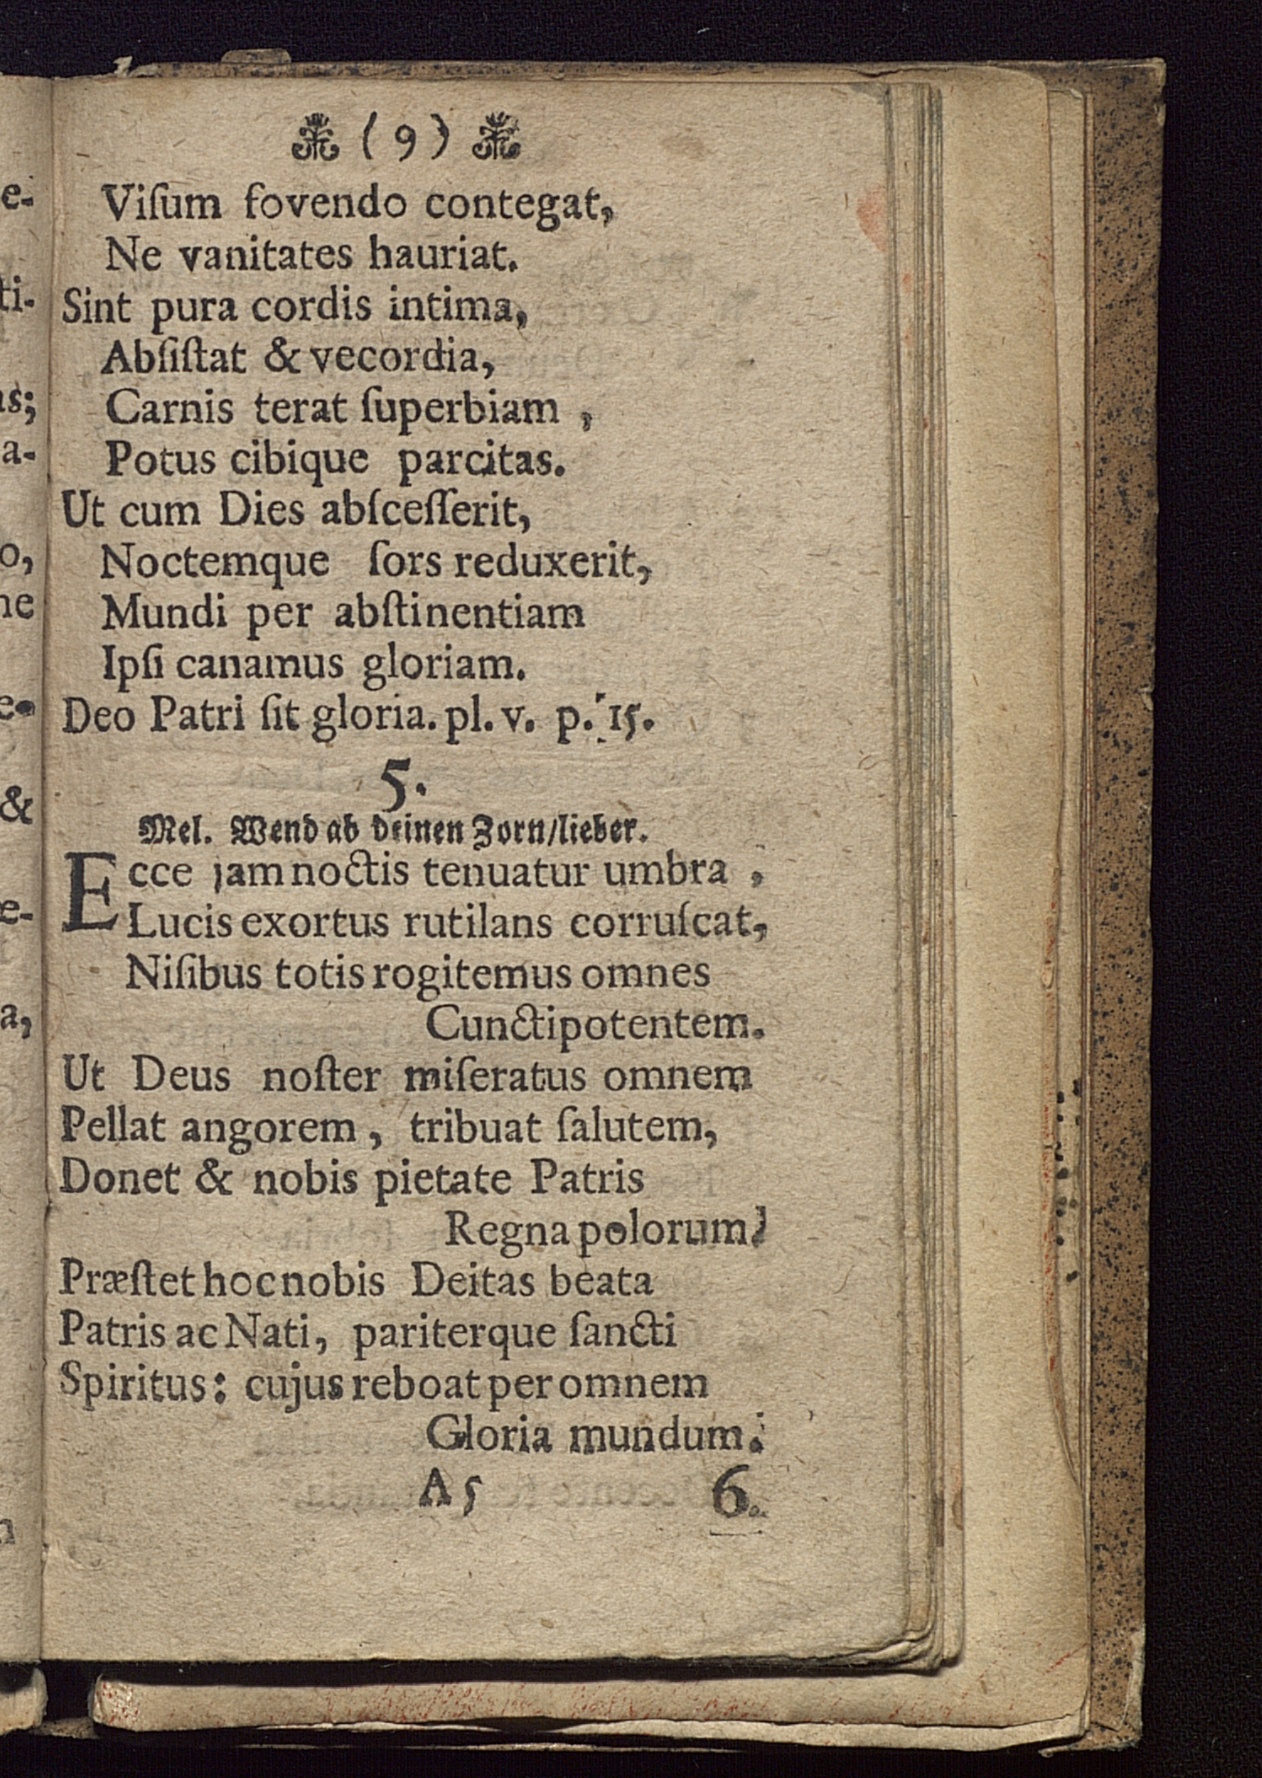 (9)
Viſum fovendo contegat,
Ne vanitates hauriat.
Sint pura cordis intima,
Abſiſtat & vecordia,
Carnis terat ſuperbiam ,
Potus cibique parcitas.
Ut cum Dies abſceſſerit,
Noctemque ſors reduxerit,
Mundi per abſtinentiam
Ipſi canamus gloriam.
Deo Patri ſit gloria. pl. v. p. 15.
5.
Mel. Wend ab deinen Zorn/lieber.
Ecce jam noctis tenuatur umbra ,
Lucis exortus rutilans corruſcat,
Niſibus totis rogitemus omnes
Cunctipotentem.
Ut Deus noſter miſeratus omnem
Pellat angorem, tribuat ſalutem,
Donet & nobis pietate Patris
Regna polorum.
Præſtet hoc nobis Deitas beata
Patris ac Nati, pariterque ſancti
Spiritus: cujus reboat per omnem
Gloria mundum.
A5 6.